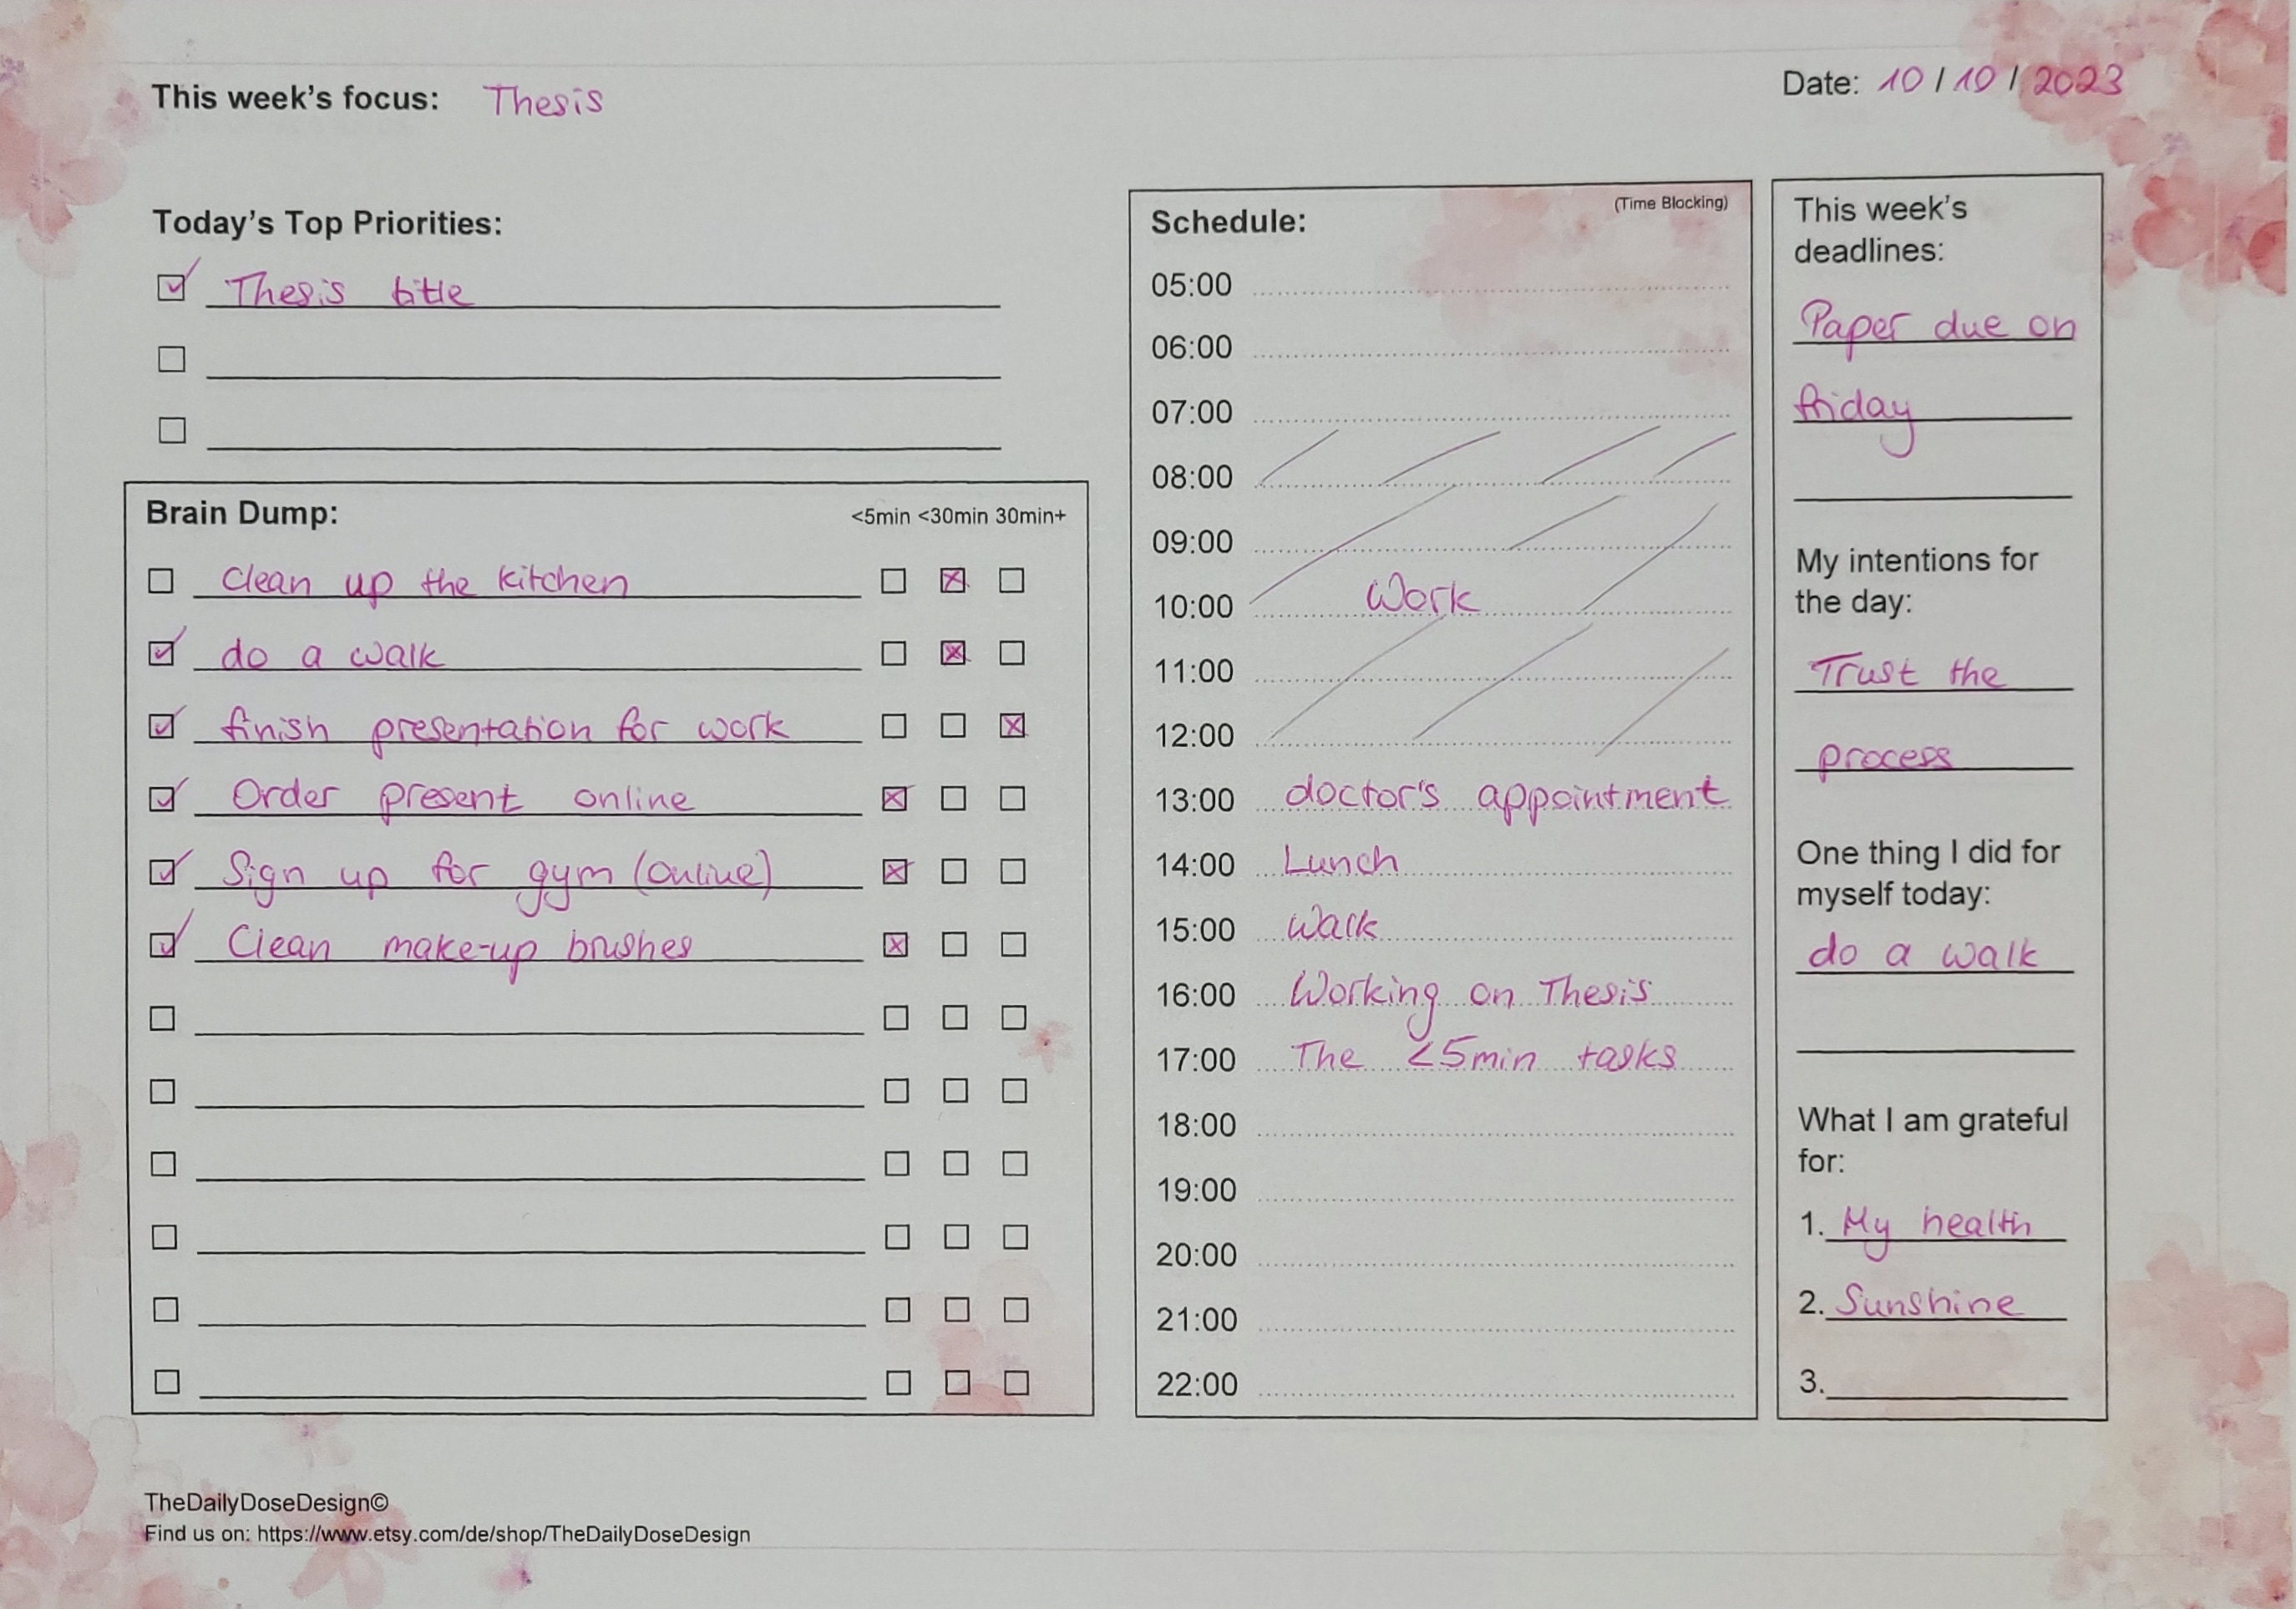 This week's focus: Thesis
Date: 10 / 10 / 2023
Today's Top Priorities:
Thesis title
Brain Dump: <5min <30min 30min+
Clean up the kitchen
do a walk
finish presentation for work
Order present online
Sign up for gym (online)
Clean make-up brushes
Schedule: (Time Blocking)
05:00
06:00
07:00
08:00
09:00
10:00 Work
11:00
12:00
13:00 doctor's appointment
14:00 Lunch
15:00 Walk
16:00 Working on Thesis
17:00 The <5min tasks
18:00
19:00
20:00
21:00
22:00
This week's
deadlines:
Paper due on
friday
My intentions for
the day:
Trust the
process
One thing I did for
myself today:
do a walk
What I am grateful
for:
1. My health
2. Sunshine
3.
TheDailyDoseDesign©
Find us on: https://www.etsy.com/de/shop/TheDailyDoseDesign